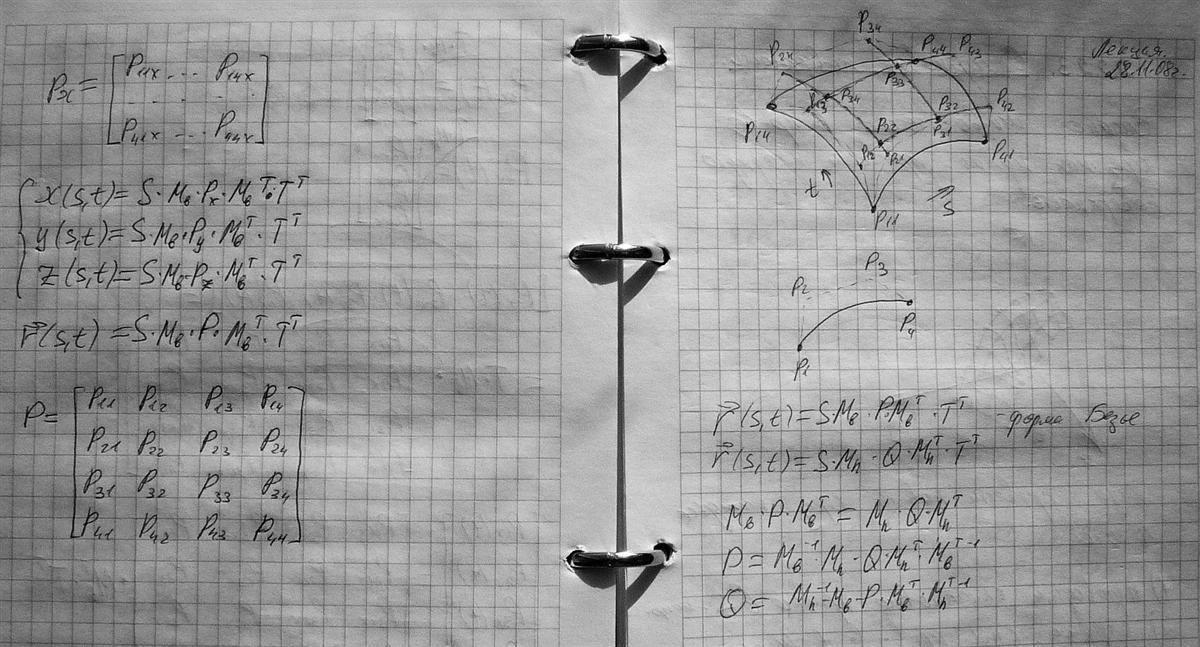 Pх = [P₁₁ₓ ... P₁₄ₓ
. . . . .
P₄₁ₓ ... P₄₄ₓ]
x(s,t) = S·Mв·Pₓ·Mвᵀ·Tᵀ
y(s,t) = S·Mв·Py·Mвᵀ·Tᵀ
z(s,t) = S·Mв·Pz·Mвᵀ·Tᵀ
r⃗(s,t) = S·Mв·P·Mвᵀ·Tᵀ
P = [P₁₁ P₁₂ P₁₃ P₁₄
P₂₁ P₂₂ P₂₃ P₂₄
P₃₁ P₃₂ P₃₃ P₃₄
P₄₁ P₄₂ P₄₃ P₄₄]
Лекция.
28.11.08г.
P₃₄
P₄₄ P₄₃
P₂₄
P₃₃
P₁₃ P₃₄
P₃₂ P₄₂
P₁₄
P₂₂ P₃₁
P₁₂ P₂₁
P₄₁
t
S
P₁₁
P₃
P₂
P₄
P₁
r⃗(s,t) = S·Mв·P·Mвᵀ·Tᵀ - форма Безье
r⃗(s,t) = S·Mh·Q·Mhᵀ·Tᵀ
Mв·P·Mвᵀ = Mh·Q·Mhᵀ
P = Mв⁻¹·Mh·Q·Mhᵀ·Mвᵀ⁻¹
Q = Mh⁻¹·Mв·P·Mвᵀ·Mhᵀ⁻¹